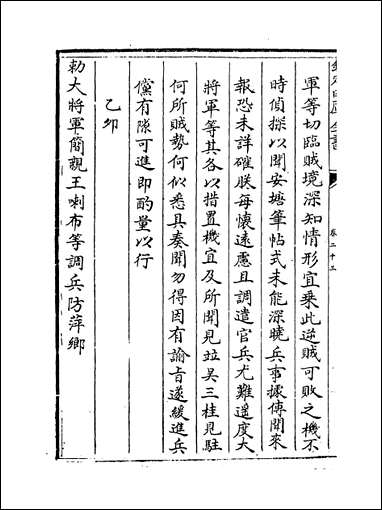 欽定四庫全書
卷二十三
軍等切臨賊境深知情形宜乗此逆賊可敗之機不
時偵探以聞安塘筆帖式未能深曉兵事據傳聞來
報恐未詳確朕每懷遠慮且調遣官兵尤難遥度大
將軍等其各以措置機宜及所聞見並吳三桂見駐
何所賊勢何似悉具奏聞勿得因有諭㫖遂緩進兵
儻有隙可進即酌量以行
乙夘
勅大將軍簡親王喇布等調兵防萍鄉